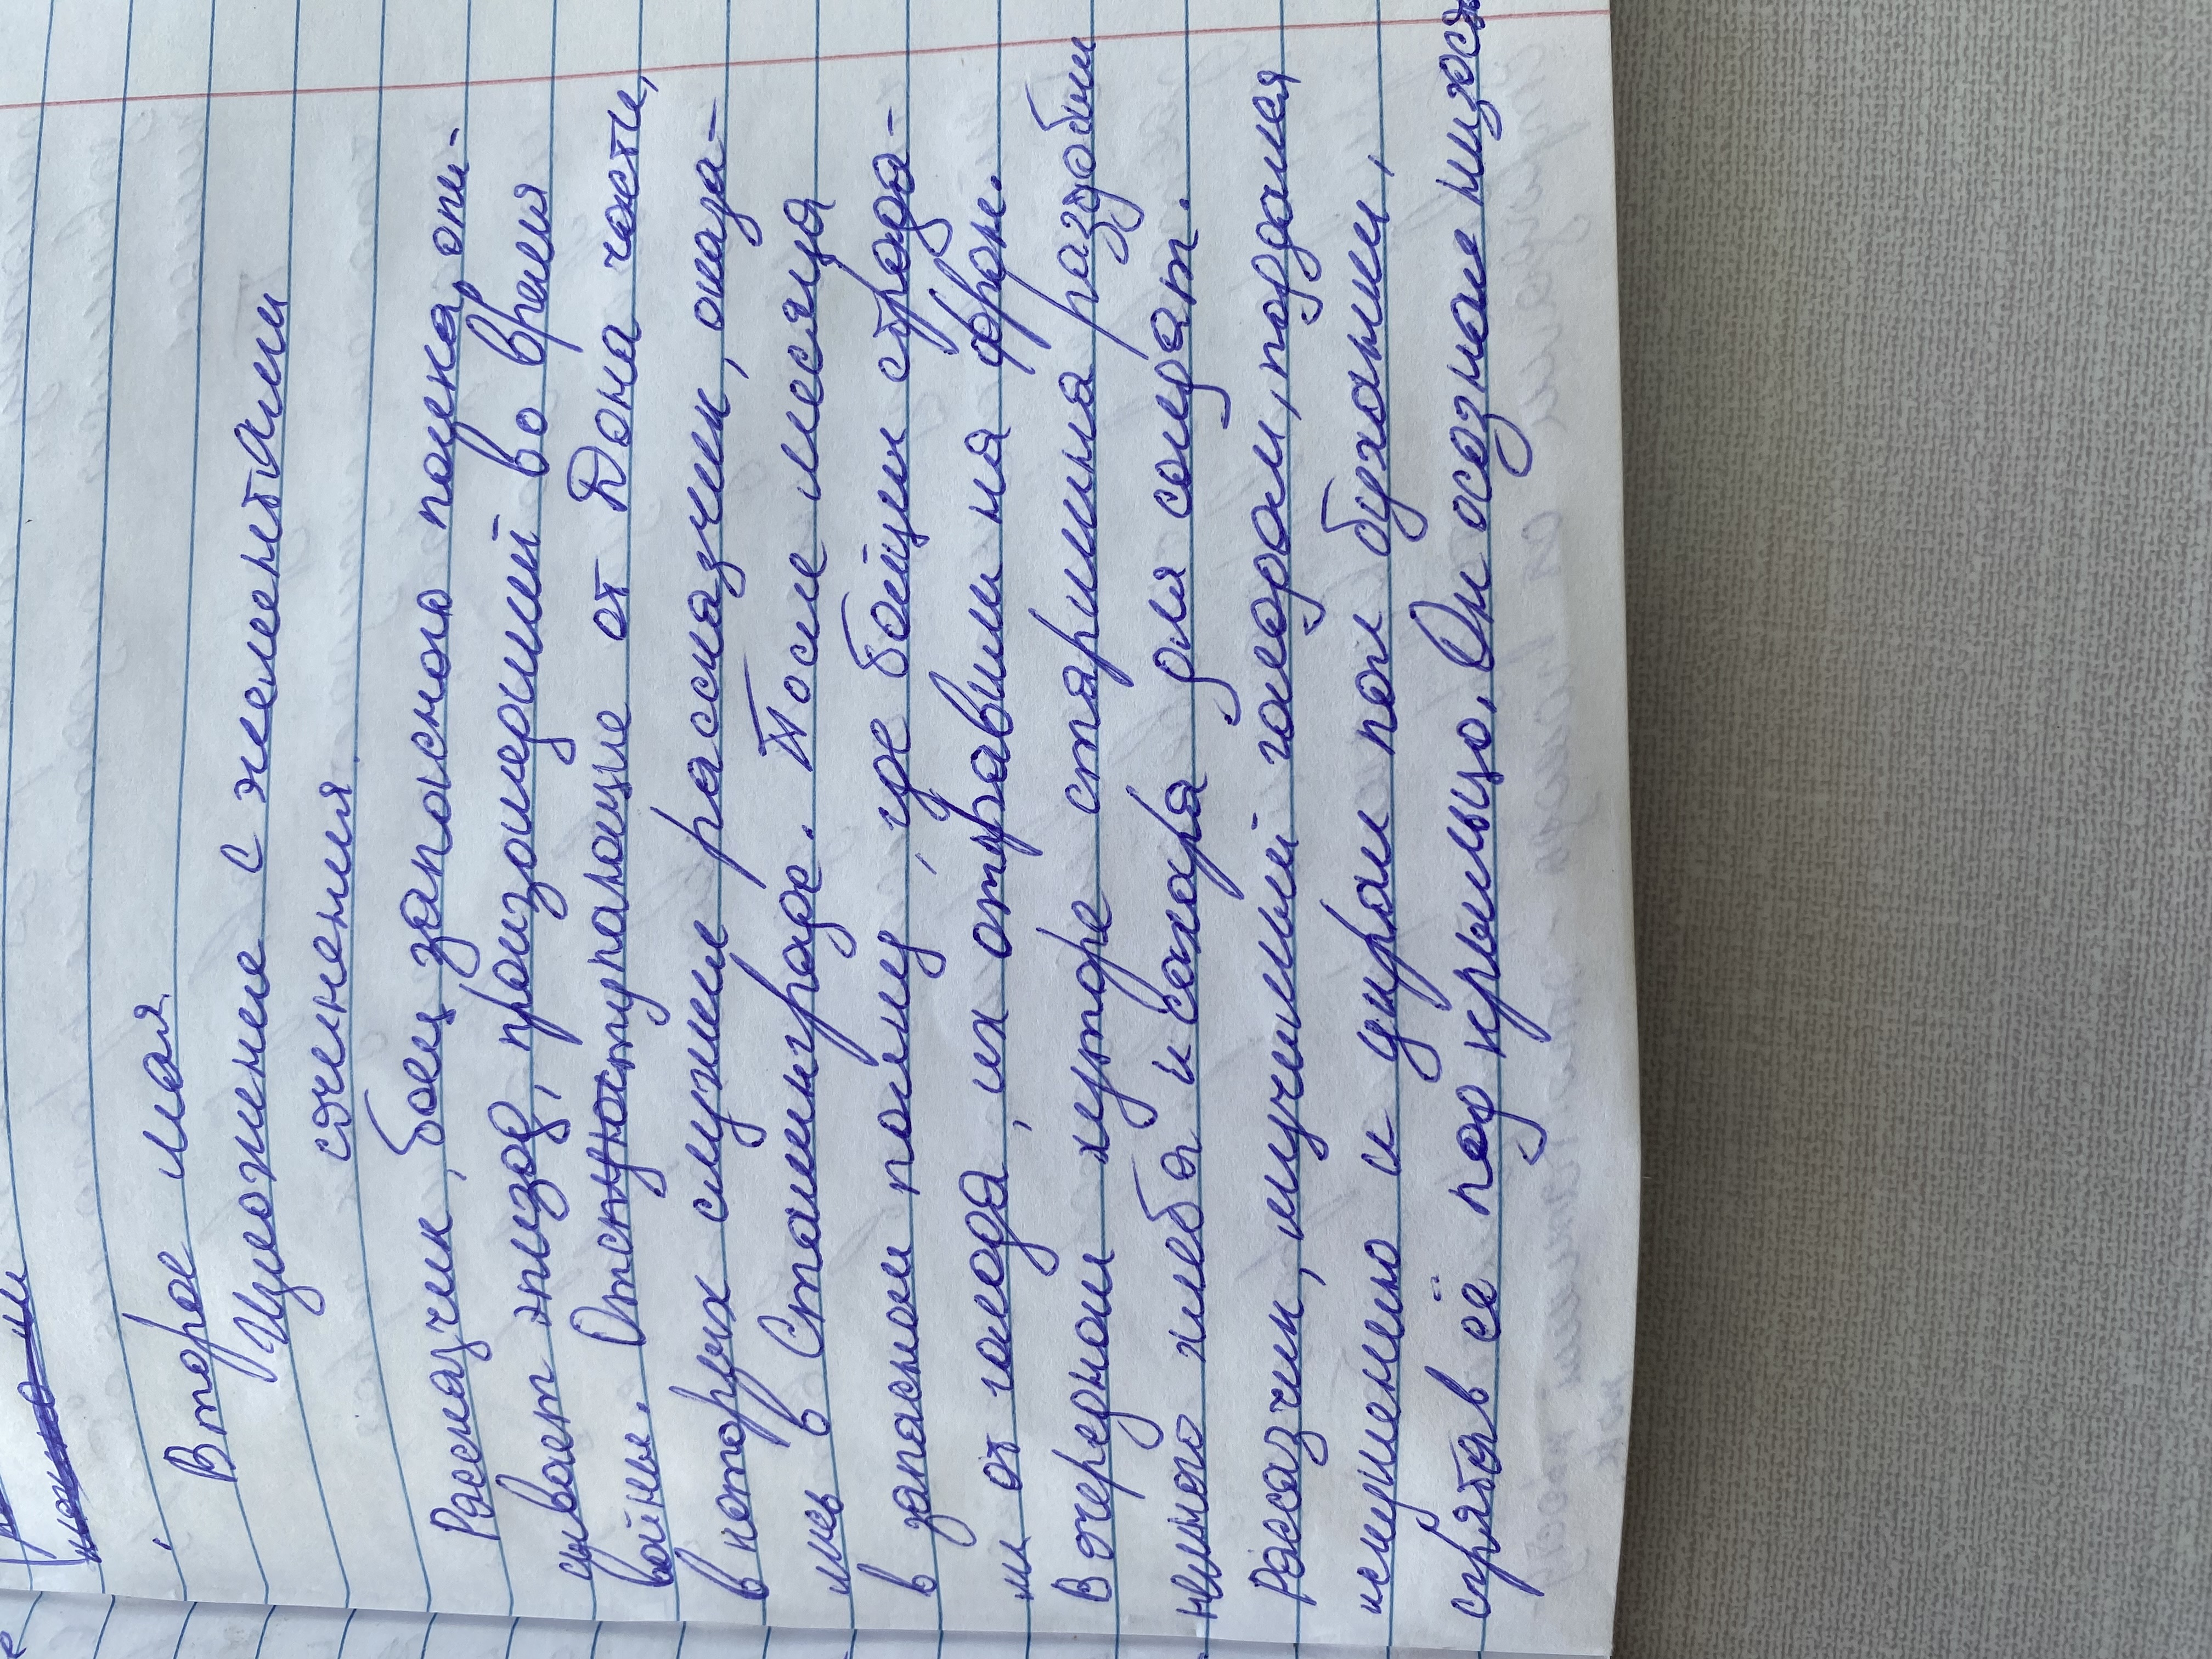 Второе мая.
Изложение с элементами
сочинения.
Рассказчик, боец запасного полка, опи-
сывает эпизод, произошедший во время
войны. Отступающие от Дона части,
в которых служил рассказчик, оказа-
лись в Сталинграде. После месяца
в запасном полку, где бойцы страда-
ли от голода, их отправили на фронт.
В очередном хуторе старшина раздобыл
немного хлеба и сахара для солдат.
Рассазчик, мучимый голодом, поддался
искушению и украл пол буханки,
спрятав её под крыльцо. Он осознал низость